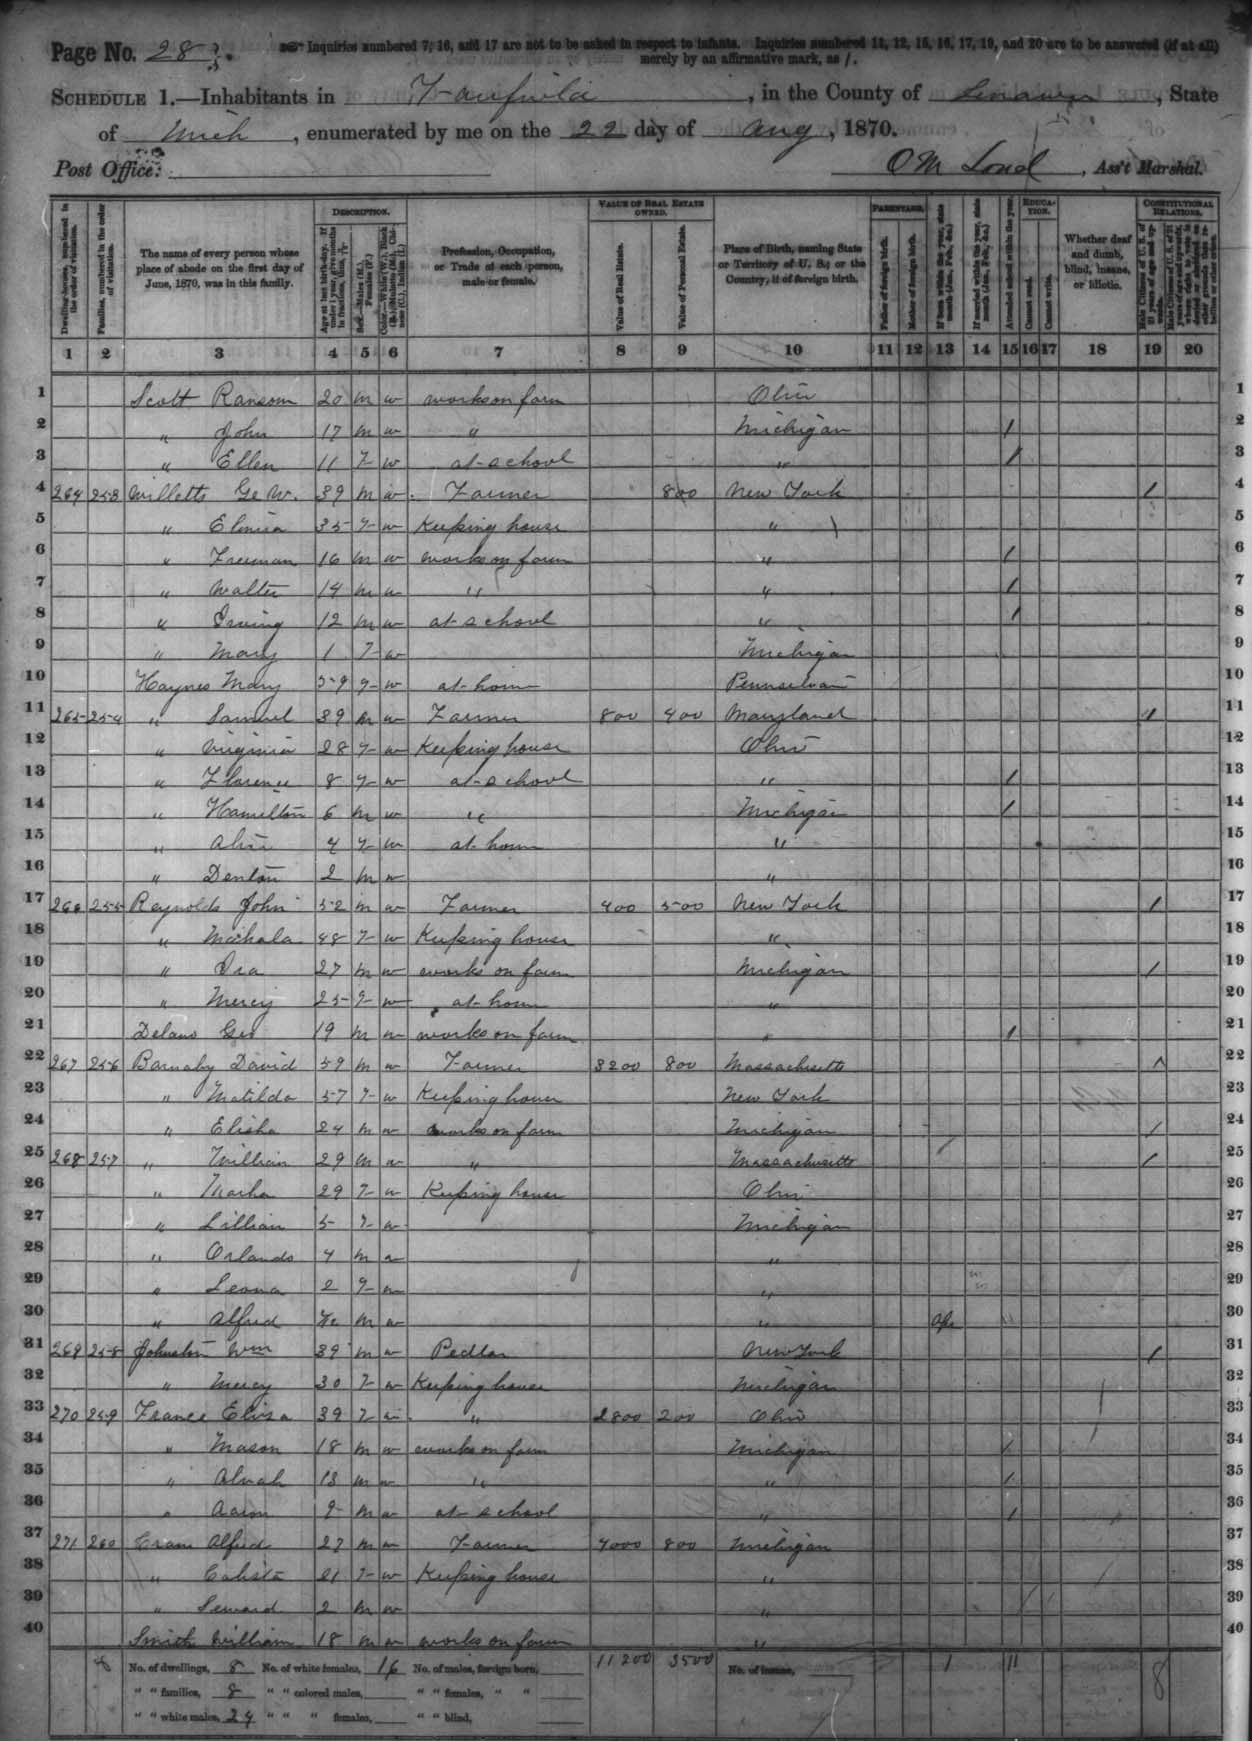 Page No. 28
Inquiries numbered 7, 16, and 17 are not to be asked in respect to infants. Inquiries numbered 11, 12, 15, 16, 17, 19, and 20 are to be answered (if at all)
merely by an affirmative mark, as /.
SCHEDULE 1.—Inhabitants in Fairfield, in the County of Lenawee, State
of Mich, enumerated by me on the 22 day of Aug, 1870.
Post Office: O M Loud, Ass't Marshal.
DESCRIPTION. VALUE OF REAL ESTATE OWNED. PARENTAGE. EDUCATION. CONSTITUTIONAL RELATIONS.
Dwelling-houses, numbered in the order of visitation.
Families, numbered in the order of visitation.
The name of every person whose place of abode on the first day of June, 1870, was in this family.
Profession, Occupation, or Trade of each person, male or female.
Value of Real Estate.
Value of Personal Estate.
Place of Birth, naming State or Territory of U. S.; or the Country, if of foreign birth.
Father of foreign birth.
Mother of foreign birth.
If born within the year, state month (Jan., Feb., &c.)
If married within the year, state month (Jan., Feb., &c.)
Attended school within the year.
Cannot read.
Cannot write.
Whether deaf and dumb, blind, insane, or idiotic.
1 2 3 4 5 6 7 8 9 10 11 12 13 14 15 16 17 18 19 20
1 Scott Ransom 20 m w works on farm Ohio 1
2 " John 17 m w " Michigan / 2
3 " Ellen 11 F w at school " / 3
4 264 253 Willetts Ge W. 39 m w Farmer 800 New York / 4
5 " Elmira 35 F w Keeping house " 5
6 " Freeman 16 m w works on farm " / 6
7 " Walter 14 m w " " / 7
8 " Irving 12 m w at school " / 8
9 " Mary 1 F w Michigan 9
10 Haynes Mary 59 F w at home 10
11 265 254 " Samuel 39 m w Farmer 800 400 Maryland / 11
12 " Virginia 28 F w Keeping house Ohio 12
13 " Florence 8 F w at school " / 13
14 " Hamilton 6 m w " Michigan / 14
15 " 4 F w at home " 15
16 " Denton 2 m w " 16
17 266 255 Reynolds John 52 m w Farmer 400 500 New York / 17
18 " Mahala 48 F w Keeping house " 18
19 " Ira 27 m w works on farm Michigan / 19
20 " Mercy 25 F w at home " 20
21 Delano Geo 19 m w works on farm " / 21
22 267 256 Barnaby David 59 m w Farmer 3200 800 Massachusetts / 22
23 " Matilda 57 F w Keeping house New York 23
24 " Elisha 24 m w works on farm Michigan / 24
25 268 257 " William 29 m w " Massachusetts / 25
26 " 29 F w Keeping house Ohio 26
27 " Lillian 5 F w Michigan 27
28 " Orlando 4 m w " 28
29 " Leona 2 F w " 29
30 " Alfred m w " Apr 30
31 269 258 Johnston Wm 39 m w Pedlar New York / 31
32 " Mercy 30 F w Keeping house Michigan 32
33 270 259 France Eliza 39 F w " 2800 200 Ohio 33
34 " Mason 18 m w works on farm Michigan / 34
35 " Alvah 13 m w " " / 35
36 " Aaron 9 m w at school " / 36
37 271 260 Cram Alfred 27 m w Farmer 4000 800 Michigan 37
38 " Calista 21 F w Keeping house " 38
39 " Seward 2 m w " 39
40 Smith William 18 m w works on farm " 40
No. of dwellings, 8 No. of white females, 16 No. of males, foreign born, 11200 3500 No. of insane, 1 11 8
" " families, 8 " " colored males, " " females, " "
" " white males, 24 " " " females, " " blind,